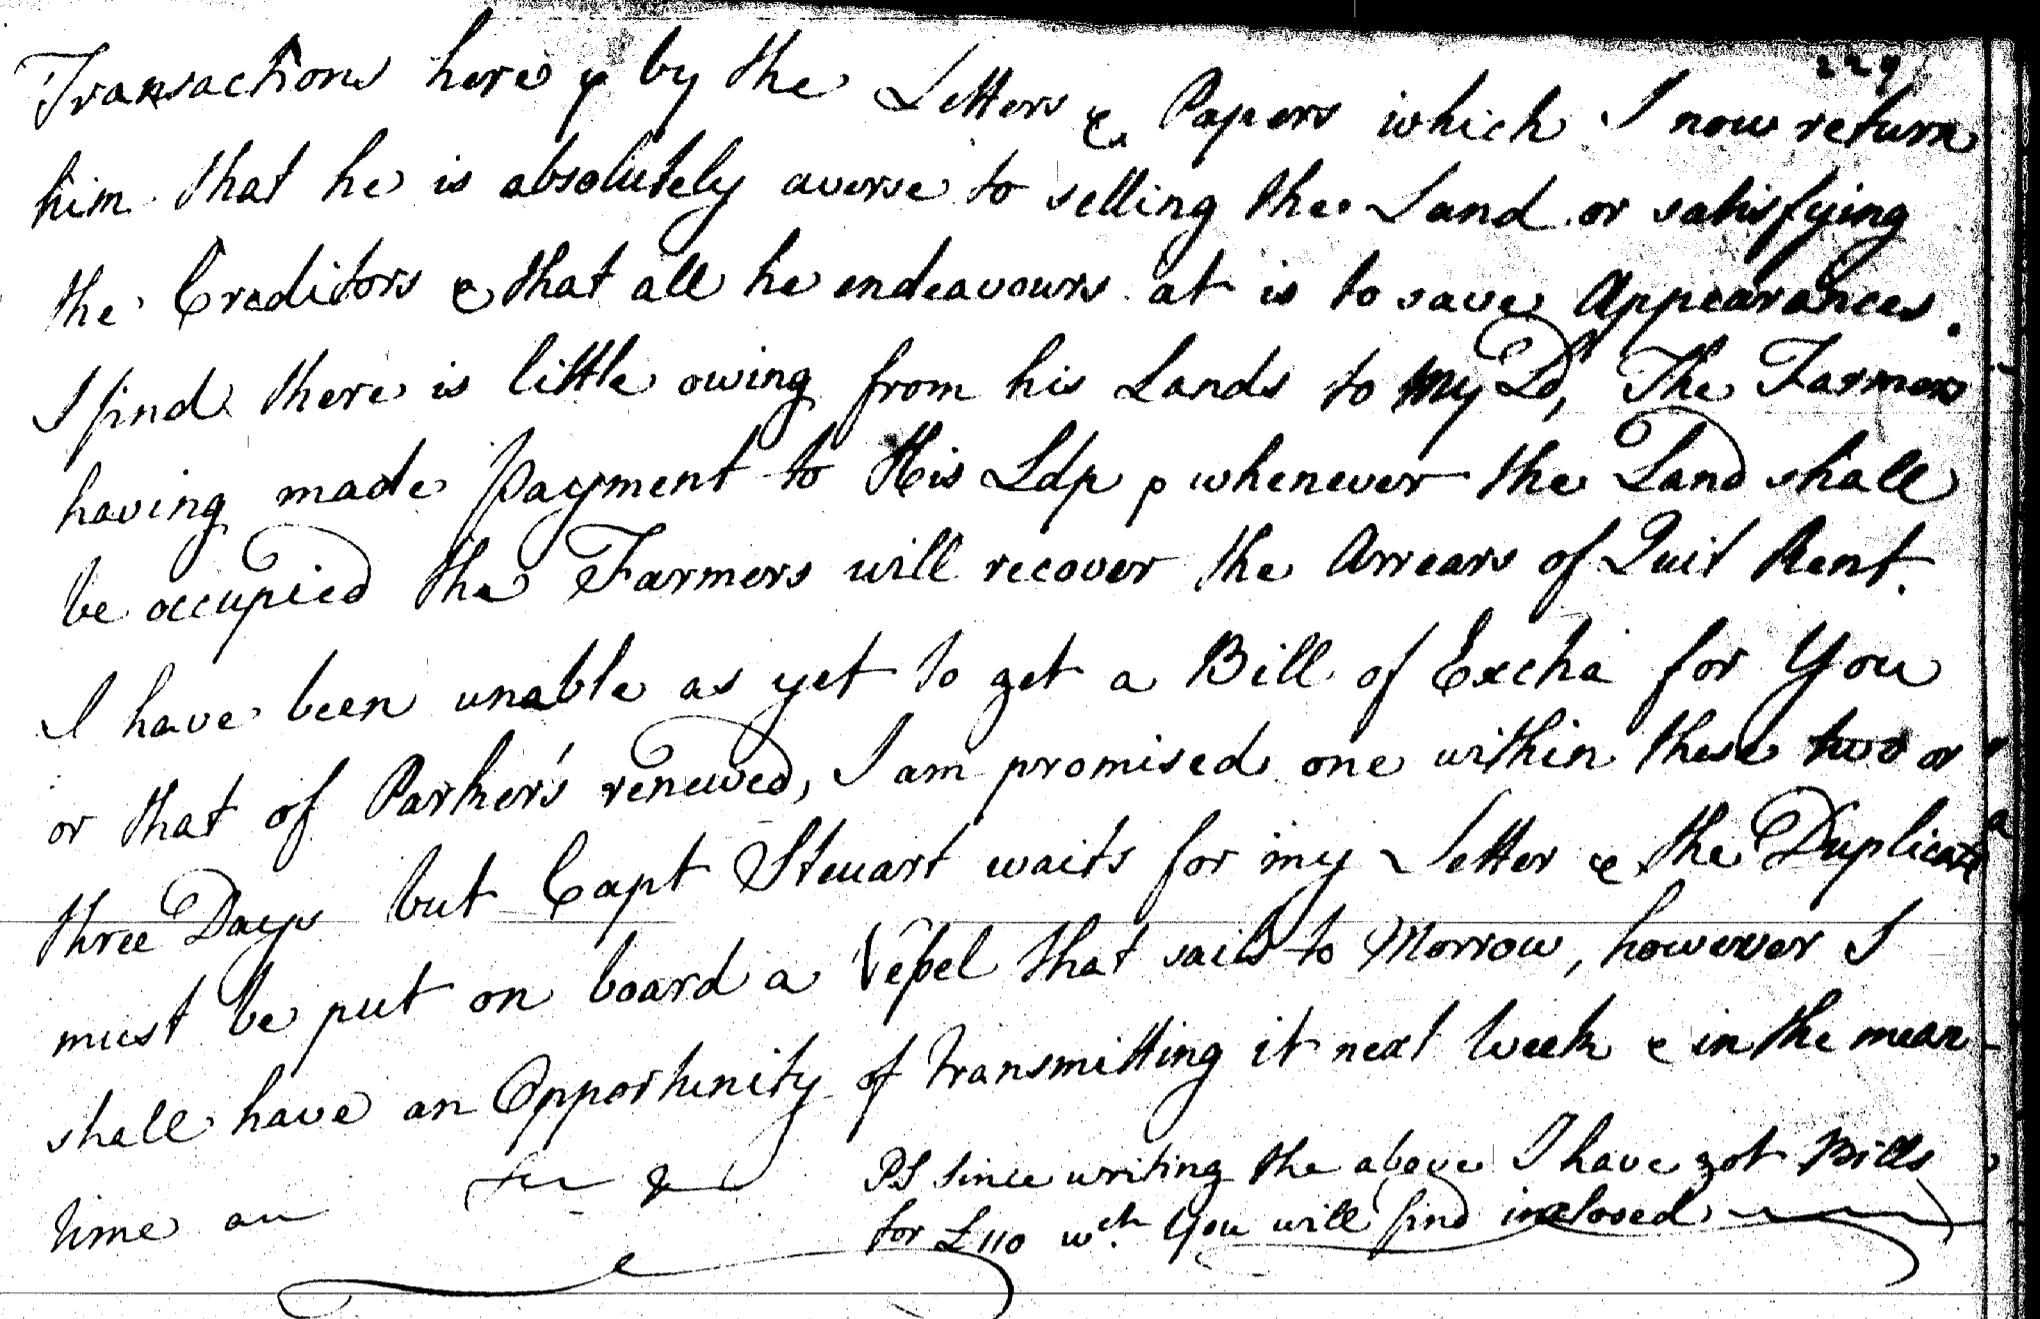 229
Transactions here & by the Letters & Papers which I now return
him that he is absolutely averse to selling the Land or satisfying
the Creditors & that all he endeavours at is to save Appearances.
I find there is little owing from his Lands to My Ld, The Farmers
having made payment to His Ldp & whenever the Land shall
be occupied the Farmers will recover the Arrears of Quit Rent.
I have been unable as yet to get a Bill of Excha for You
or that of Parker's renewed, I am promised one within these two or
three Days but Capt Steuart waits for my Letter & the Duplicate
must be put on board a Veſsel that sails to Morrow, however I
shall have an Opportunity of transmitting it next Week & in the mean
time am
PS Since writing the above I have got Bills
for £110 wch. You will find inclosed